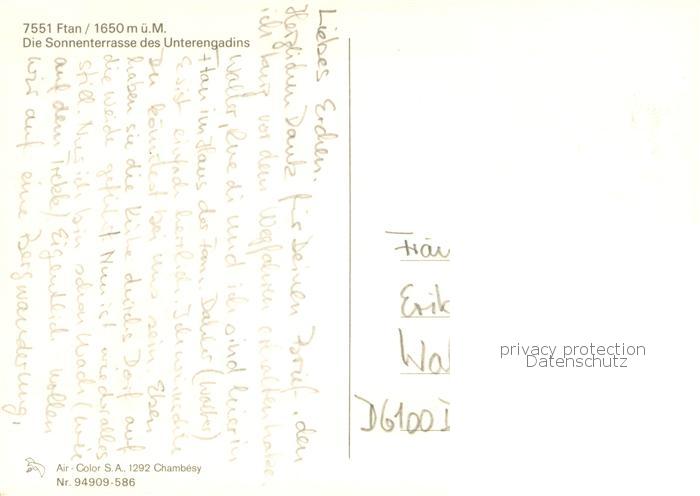 7551 Ftan / 1650 m ü.M.
Die Sonnenterrasse des Unterengadins
Liebes Erchen.
Herzlichen Dank für Deinen Brief, den
ich kurz vor dem Wegfahren erhalten habe.
Walter, Ruedi und ich sind hier in
Ftan im Haus der Fam. Dahler (Walter)
Es ist einfach herrlich. Ich wünschte
Du könntest bei uns sein. Eben
haben sie die Kühe durchs Dorf auf
die Weide geführt. Nun ist wieder alles
still. Nur ich bin schon wach (wie
auf dem Trekk) Eigentlich wollen
wir auf eine Bergwanderung,
Fräu
Erik
Wal
D6100
privacy protection
Datenschutz
Air-Color S.A., 1292 Chambésy
Nr. 94909-586